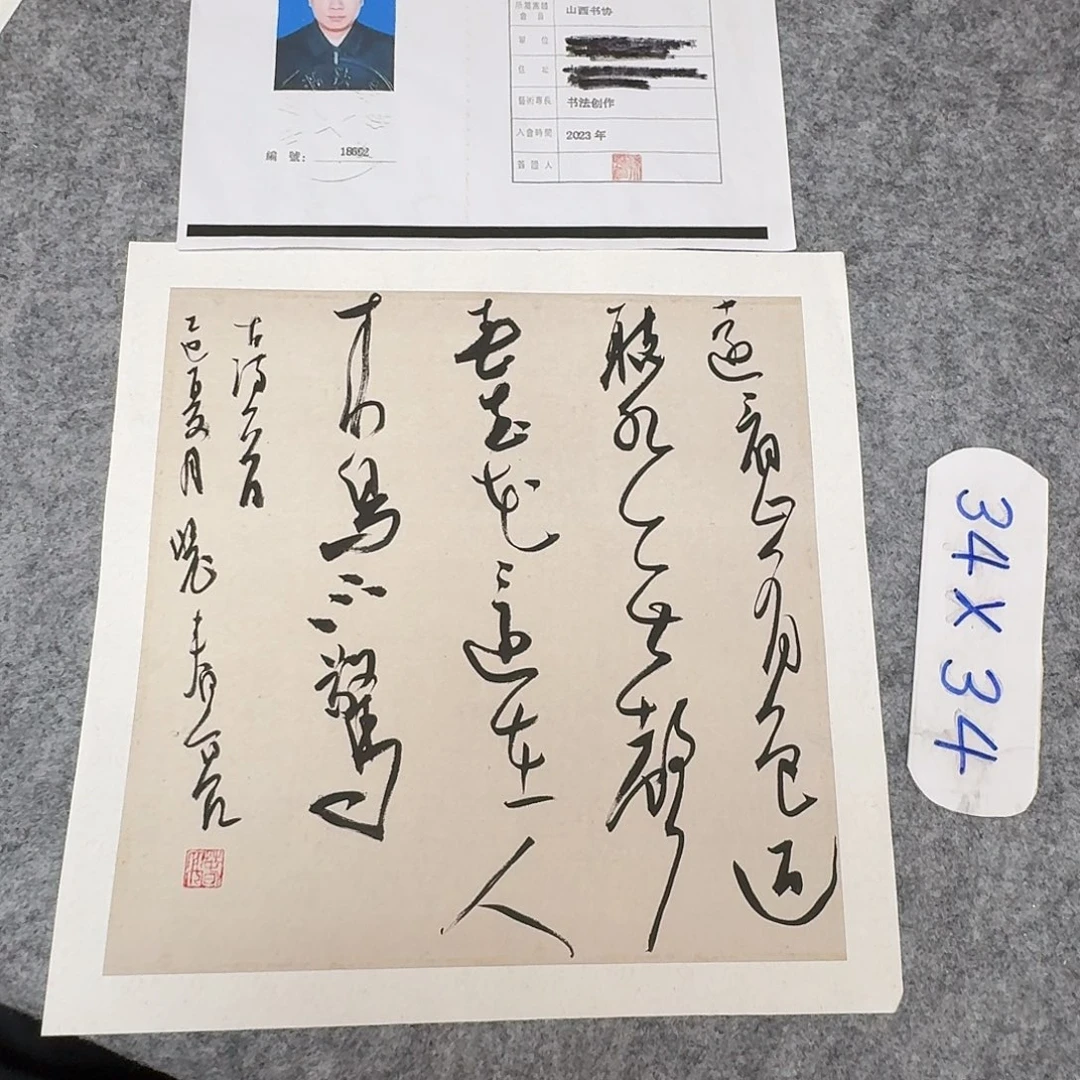 山西书协
單 位
住 址
藝術專長 书法创作
入會時間 2023 年
簽 證 人
編 號:
遠看山有色近
聽水無聲
春去花還在人
来鳥不驚
古诗一首
乙巳夏月
34 X 34